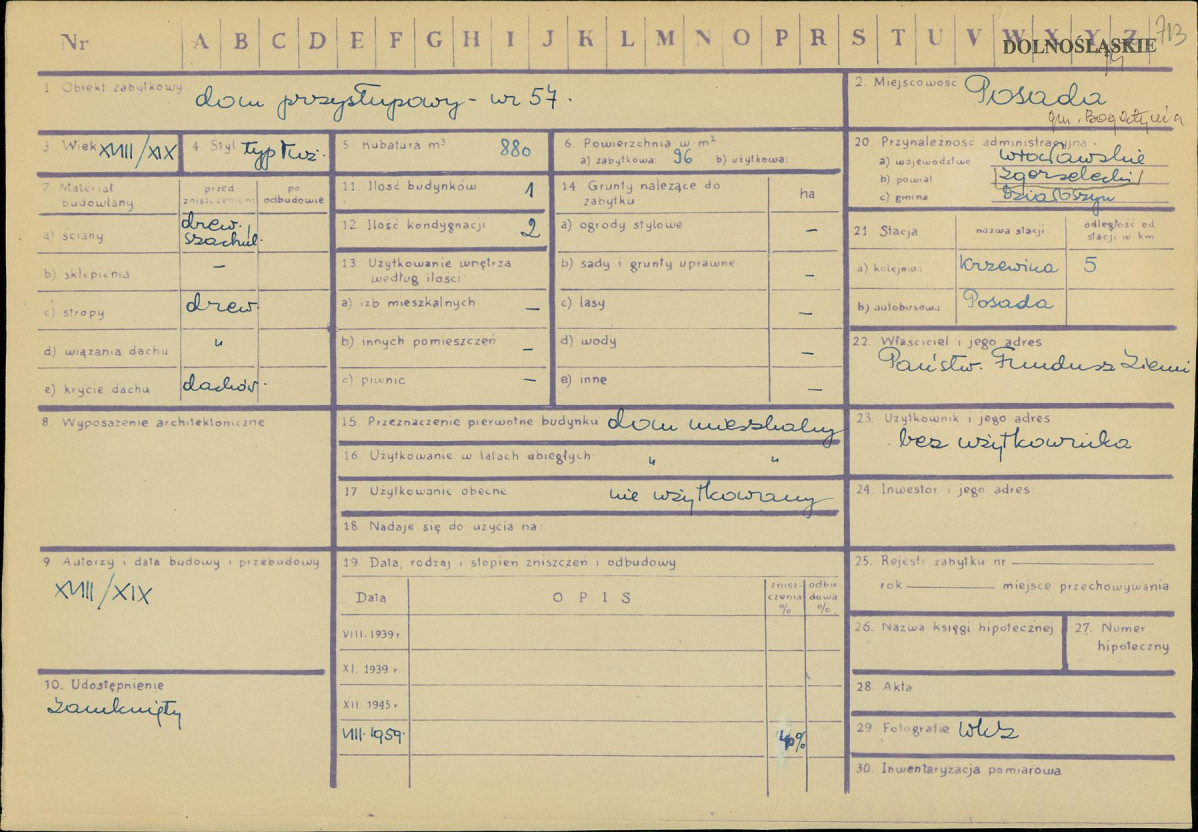 Nr A B C D E F G H I J K L M N O P R S T U V W X Y Z 713
DOLNOŚLĄSKIE
1. Obiekt zabytkowy dom przysłupowy - nr 57.
2. Miejscowość Posada
gm. Bogatynia
3. Wiek XVIII/XIX
4. Styl typ łuż.
5. Kubatura m³ 880
6. Powierzchnia w m²
a) zabytkowa: 96 b) użytkowa:
7. Materiał budowlany
przed zniszczeniem
po odbudowie
a) ściany drew. szachul.
b) sklepienia –
c) stropy drew.
d) wiązania dachu "
e) krycie dachu dachów.
11. Ilość budynków 1
12. Ilość kondygnacji 2
13. Użytkowanie wnętrza według ilości:
a) izb mieszkalnych –
b) innych pomieszczeń –
c) piwnic –
14. Grunty należące do zabytku
ha
a) ogrody stylowe –
b) sady i grunty uprawne –
c) lasy –
d) wody –
e) inne –
20. Przynależność administracyjna
a) województwo wrocławskie
b) powiat zgorzelecki
c) gmina Działoszyn
21. Stacja
nazwa stacji
odległość od stacji w km
a) kolejowa Krzewina 5
b) autobusowa Posada
22. Właściciel i jego adres
Państw. Fundusz Ziemi
8. Wyposażenie architektoniczne
15. Przeznaczenie pierwotne budynku dom mieszkalny
16. Użytkowanie w latach ubiegłych " "
17. Użytkowanie obecne nie użytkowany
18. Nadaje się do użycia na:
23. Użytkownik i jego adres
bez użytkownika
24. Inwestor i jego adres:
9. Autorzy i data budowy i przebudowy
XVIII/XIX
10. Udostępnienie
zamknięty
19. Data, rodzaj i stopień zniszczeń i odbudowy
Data
OPIS
zniszczenia %
odbudowa %
VIII. 1939 r.
XI. 1939 r.
XII. 1945 r.
VIII. 1959. 40%
25. Rejestr zabytku nr
rok miejsce przechowywania
26. Nazwa księgi hipotecznej
27. Numer hipoteczny
28 Akta
29 Fotografie WKZ
30. Inwentaryzacja pomiarowa